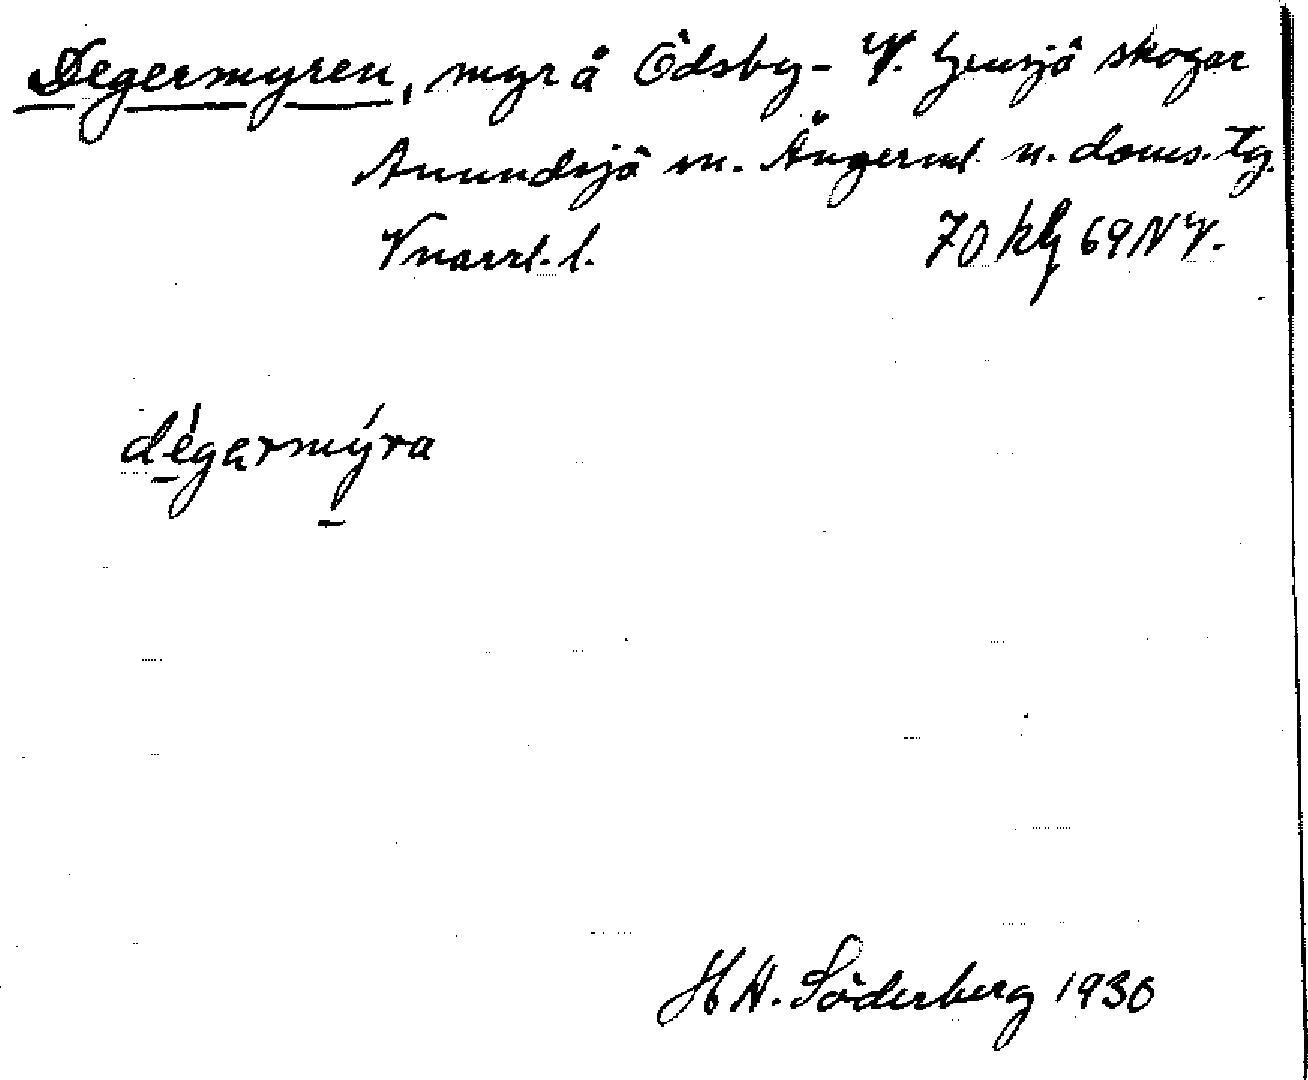 Degermyren, myr å Ödsby- V. Gensjö skogar
Anundsjö sn. Ångerml. n. doms. tg.
Vnorrl. l. 70 kkg 69 NV.
dégarmýra
H A. Söderberg 1930